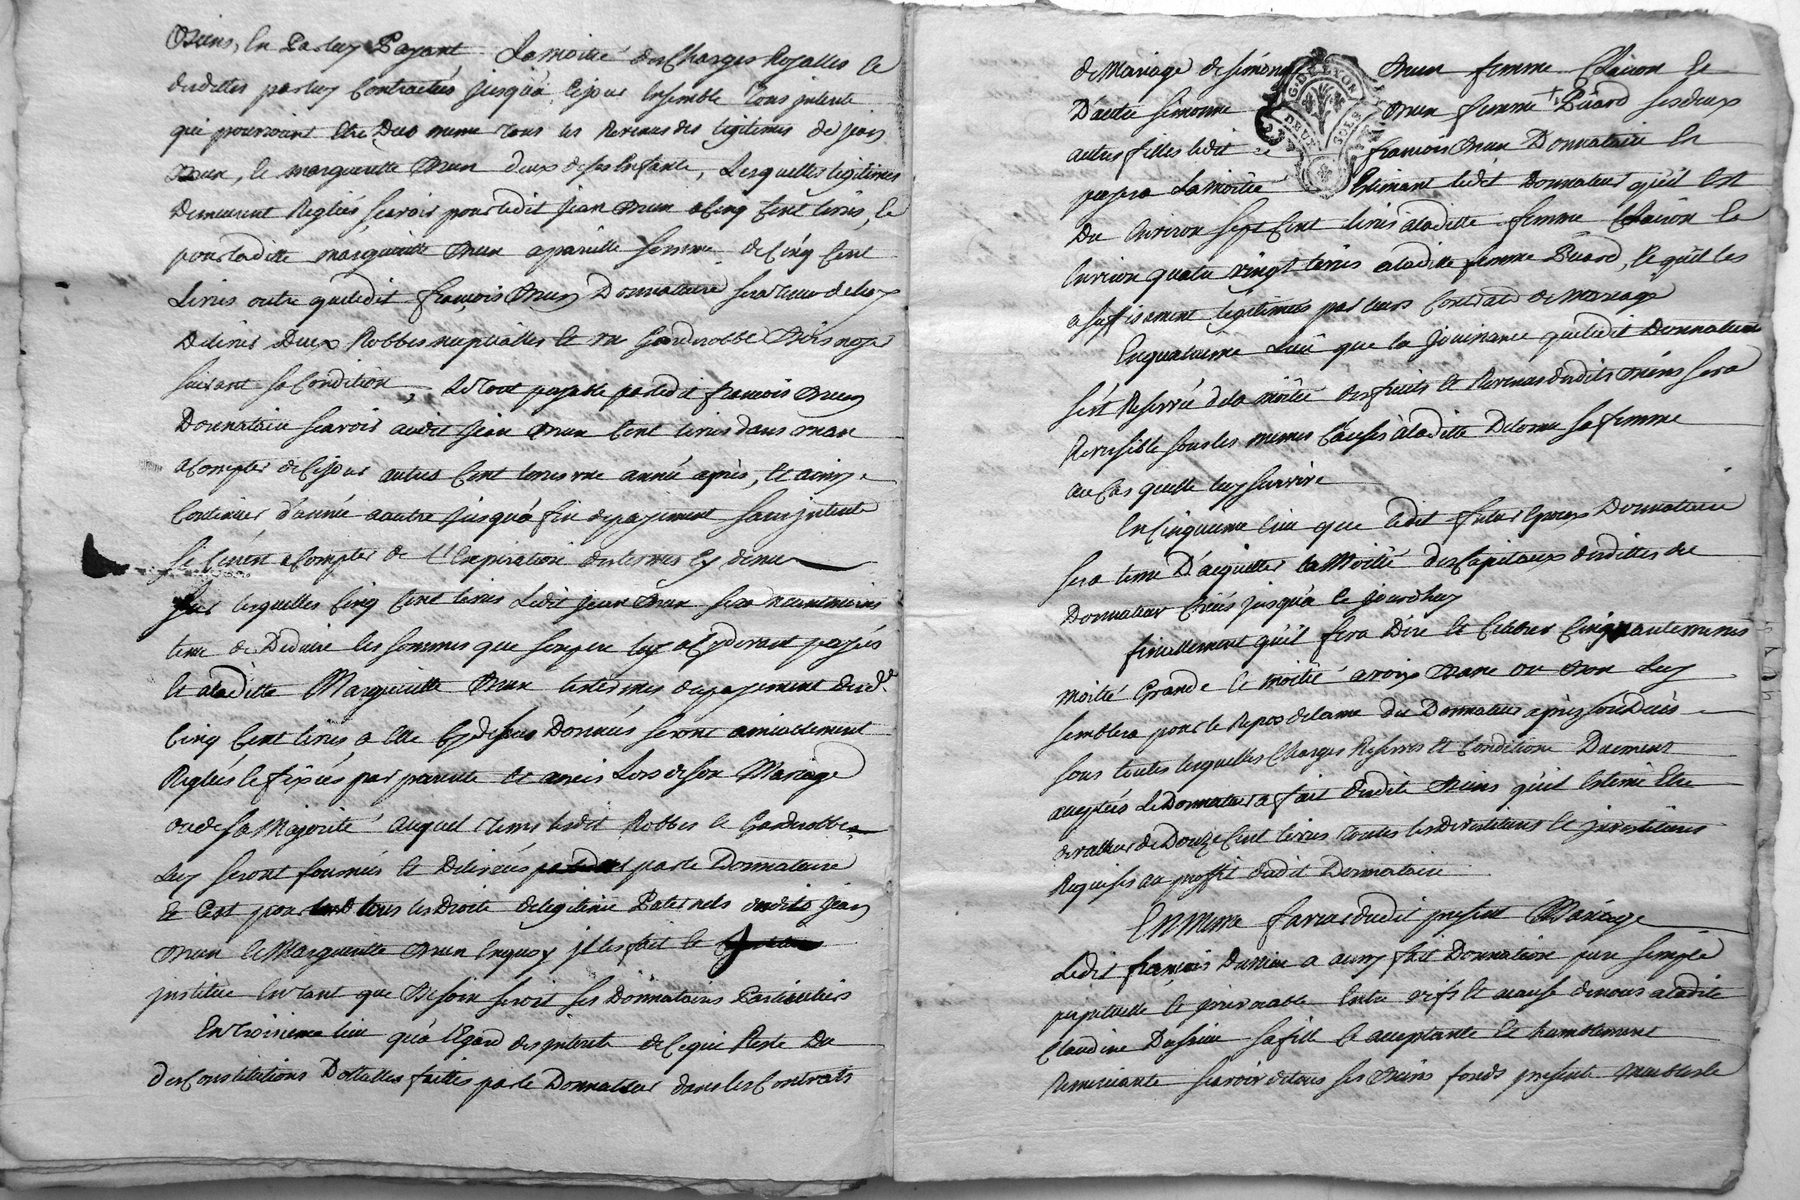 Biens, En Par luy Payant La moitié des Charges Royalles &
desdittes par luy Contractées jusqua Cejour Ensemble tous jnterets
qui pourroient Etre Dus meme tous les Revenus des legitimes de jean
Brun, & margueritte Brun deux de ses Enfants, Lesquelles legitimes
Demeurent Reglées, scavoir pour ledit jean Brun a Cinq Cent livres, &
pour laditte margueritte Brun a pareille somme de Cinq Cent
Livres outre que ledit françois Brun Donnataire sera tenu de luy
Delivrer Deux Robbes nuptialles & un Garderobbe Bois noyer
suivant sa Condition, Le tout payable par ledit francois Brun
Donnataire scavoir audit jean Brun Cent livres dans un an
a Compter de Cejour autres Cent livres une année après, & ainsy
Continuer d'année a autre jusqu'a fin de payement sans jnterets
si Ce n'est a Compter de L'Expiration des termes Cy dessus
Sur lesquelles Cinq Cent livres Ledit jean Brun sera neantmoins
tenu de Deduire les sommes que son pere luy a Cy devant payés
Et a laditte Margueritte Brun les termes du payement desd.es
Cinq Cent livres a elle Cy dessus Données seront amiablement
Reglés & fixés par parents & amis Lors de son Mariage
ou de sa Majorité auquel tems lesdit Robbes & Garderobbe
Luy seront fournies & Delivrées par le Donnataire
& C'est pour tous les Droits de legitime Paternels desdits jean
Brun & Margueritte Brun En quoy jl les fait &
jnstitue En tant que Besoin seroit ses Donnataires Particuliers
En Troisieme lieu qu'a l'Egard des jnterets de Ce qui Reste Du
des Constitutions Dottalles faittes par le Donnateur dans les Contrats
de Mariage de simonne Brun femme Claison &
D'autre simonne Brun femme + Buard ses deux
autres filles ledit francois Brun Donnataire En
payera La moitié Estimant ledit Donnateur qu'il Est
Du Environ sept Cent livres a laditte femme Claison &
Environ quatre vingt livres a laditte femme Buard, & qu'il les
a suffisament legitimées par leurs Contrats de Mariage
En quatrieme Lieu que la Jouissance que ledit Donnateur
s'est Reservée de la moitié des fruits & Revenus desdits Biens sera
Reversible sous les memes Causes a laditte Delorme sa femme
au Cas quelle luy survive
En Cinquieme lieu que ledit futur Epoux Donnataire
sera tenu D'acquitter la Moitié des Capitaux desdittes du
Donnateur Créés jusqu'a Ce jourdhuy
finellement qu'il fera Dire & Celebrer Cinquante messes
moitié Grande & moitié a voix Basse ou Bon Luy
semblera pour le Repos de lame du Donnateur après son Deces
sous toutes lesquelles Charges Reserves & Conditions Duement
acceptées Le Donnateur a fait desdits Biens qu'il Estime Etre
de valeur de Douze Cent livres toutes les devestitures & jnvestitures
Requises au proffit dudit Donnataire
En Meme faveur dudit present Mariage
Ledit françois a aussy fait Donnation pure simple
perpetuelle & jrrevocable Entre vifs & a cause de nous a laditte
Claudine sa fille & acceptante & humblement
Remerciante scavoir de tous ses Biens fonds presents Meubles &
GDE LYON
DEUX SOLS